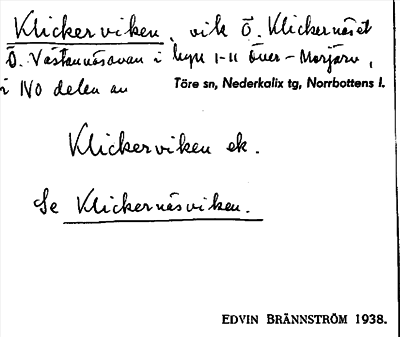 Klickerviken, vik Ö. Klickernäset
Ö. Västannäsavan i byn 1-11 Över-Morjärv,
i NO delen av Töre sn, Nederkalix tg, Norrbottens l.
Klickerviken ek.
Se Klickernäsviken.
EDVIN BRÄNNSTRÖM 1938.